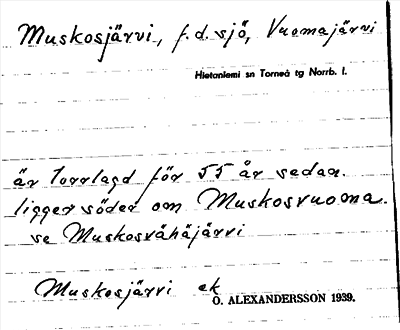 Muskosjärvi, f.d. sjö, Vuomajärvi
Hietaniemi sn Torneå tg Norrb. l.
är torrlagd för 55 år sedan.
ligger söder om Muskosvuoma.
se Muskosvähäjärvi
Muskosjärvi ek
O. ALEXANDERSSON 1939.